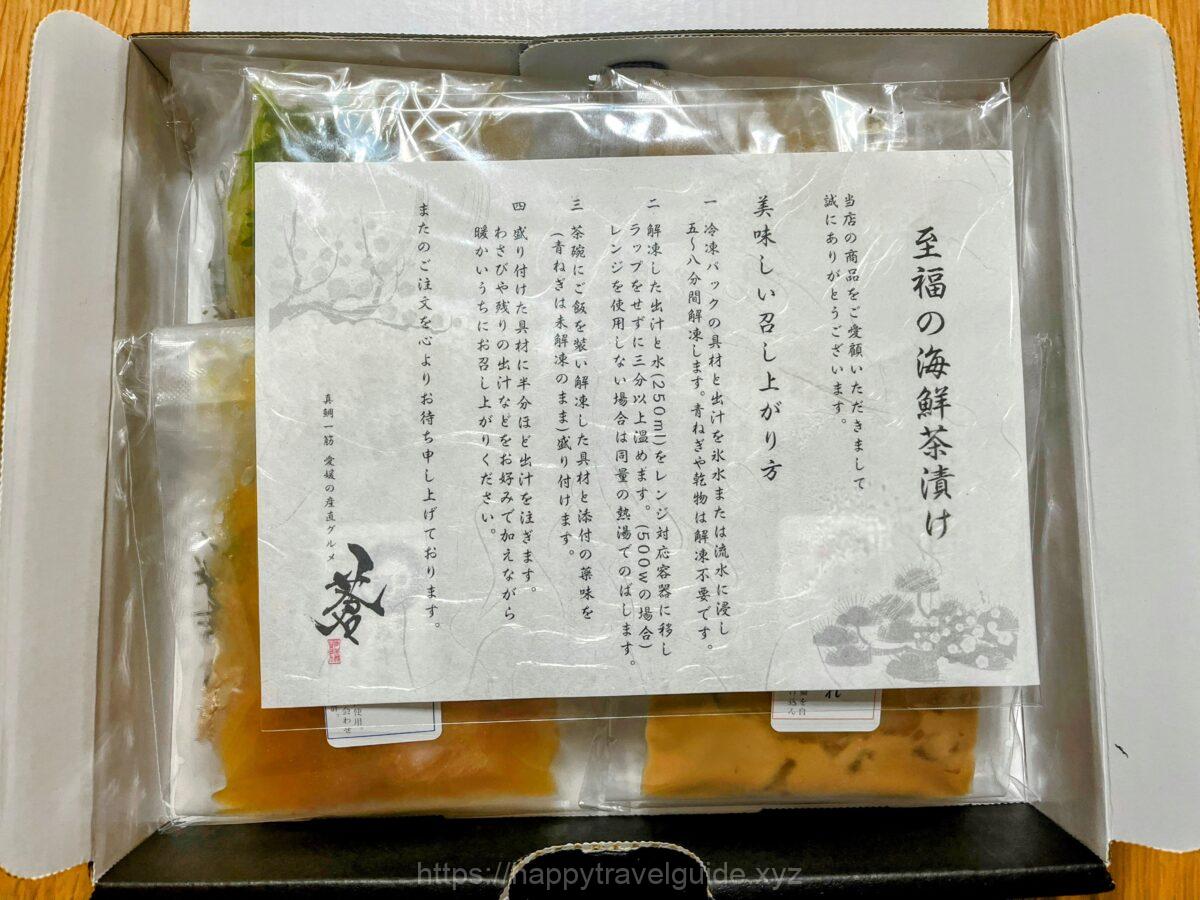 至福の海鮮茶漬け
当店の商品をご愛顧いただきまして
誠にありがとうございます。
美味しい召し上がり方
一 冷凍パックの具材と出汁を氷水または流水に浸し
五～八分間解凍します。青ねぎや乾物は解凍不要です。
二 解凍した出汁と水(250ml)をレンジ対応容器に移し
ラップをせずに三分以上温めます。(500wの場合)
レンジを使用しない場合は同量の熱湯でのばします。
三 茶碗にご飯を装い解凍した具材と添付の薬味を
(青ねぎは未解凍のまま)盛り付けます。
四 盛り付けた具材に半分ほど出汁を注ぎます。
わさびや残りの出汁などをお好みで加えながら
暖かいうちにお召し上がりください。
またのご注文を心よりお待ち申し上げております。
真鯛一筋 愛媛の産直グルメ
れ
使用。
https://happytravelguide.xyz